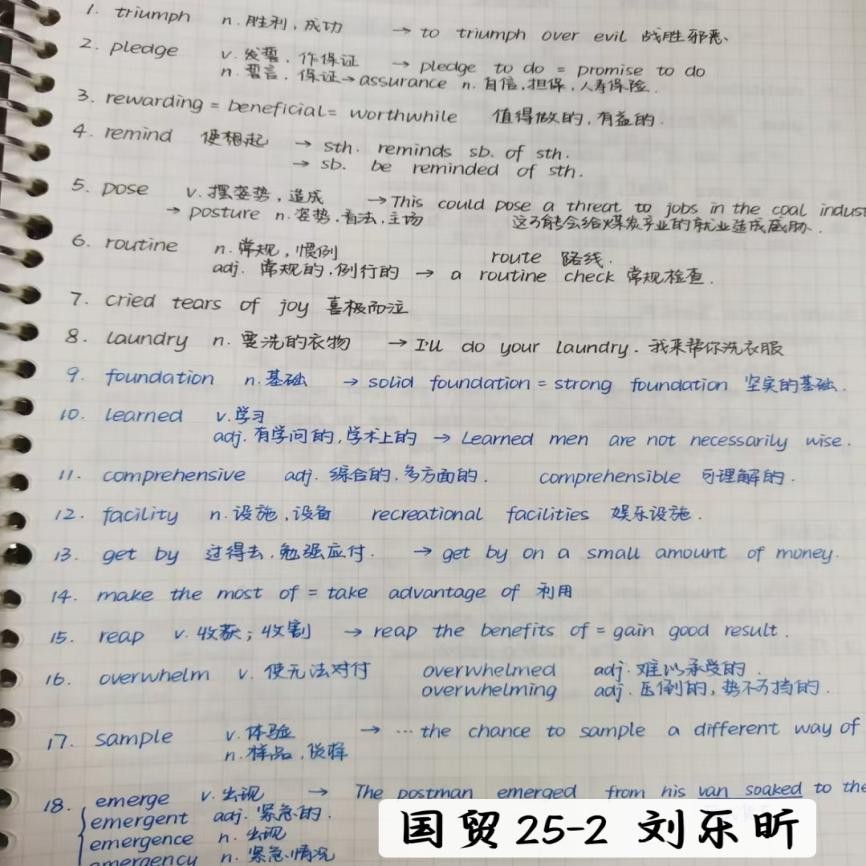 1. triumph n. 胜利，成功 → to triumph over evil 战胜邪恶、
2. pledge v. 发誓，作保证 → pledge to do = promise to do
n. 誓言，保证 → assurance n. 自信，担保，人寿保险．
3. rewarding = beneficial = worthwhile 值得做的，有益的．
4. remind 使想起 → sth. reminds sb. of sth.
→ sb. be reminded of sth.
5. pose v. 摆姿势，造成 → This could pose a threat to jobs in the coal indust
→ posture n. 姿势，看法，主场 这可能会给煤炭产业的就业造成威胁．
6. routine n. 常规，惯例 route 路线．
adj. 常规的，例行的 → a routine check 常规检查．
7. cried tears of joy 喜极而泣
8. laundry n. 要洗的衣物 → I'll do your laundry. 我来帮你洗衣服
9. foundation n. 基础 → solid foundation = strong foundation 坚实的基础．
10. learned v. 学习
adj. 有学问的，学术上的 → Learned men are not necessarily wise.
11. comprehensive adj. 综合的，多方面的． comprehensible 可理解的．
12. facility n. 设施，设备 recreational facilities 娱乐设施．
13. get by 过得去，勉强应付． → get by on a small amount of money.
14. make the most of = take advantage of 利用
15. reap v. 收获；收割 → reap the benefits of = gain good result.
16. overwhelm v. 使无法对付 overwhelmed adj. 难以承受的．
overwhelming adj. 压倒的，势不可挡的．
17. sample v. 体验 → … the chance to sample a different way of
n. 样品，货样
18. emerge v. 出现 → The postman emerged from his van soaked to the
emergent adj. 紧急的．
emergence n. 出现
emergency n. 紧急情况
国贸25-2 刘乐昕